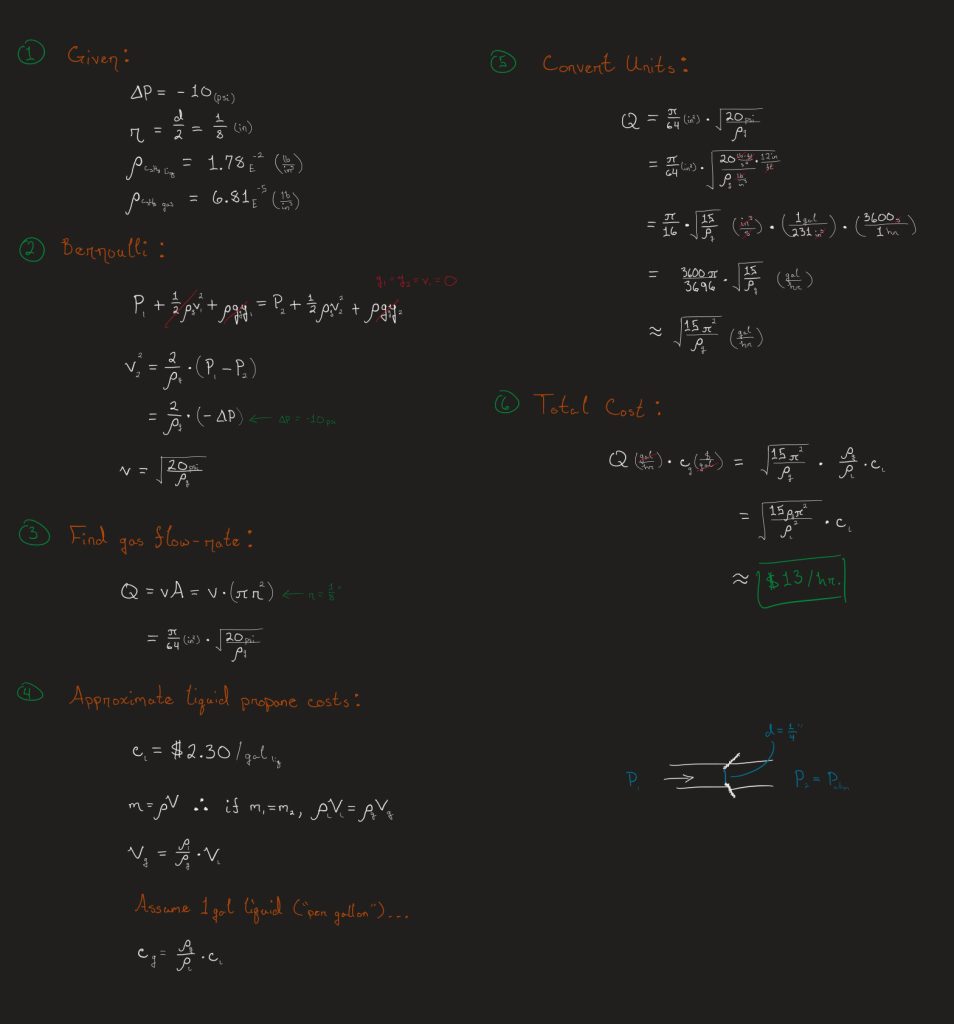 ① Given:
ΔP = -10 (psi)
r = d/2 = 1/8 (in)
ρ C₃H₈ liq = 1.78 E⁻² (lb/in³)
ρ C₃H₈ gas = 6.81 E⁻⁵ (lb/in³)
② Bernoulli:
y₁ = y₂ = v₁ = 0
P₁ + 1/2 ρg v₁² + ρg g y₁ = P₂ + 1/2 ρg v₂² + ρg g y₂
v₂² = 2/ρg · (P₁ - P₂)
= 2/ρg · (-ΔP) ← ΔP = -10 psi
v = √(20 psi/ρg)
③ Find gas flow-rate:
Q = vA = v·(πr²) ← r = 1/8"
= π/64 (in²) · √(20 psi/ρg)
④ Approximate liquid propane costs:
c_L = $2.30/gal liq
m = ρV ∴ if m₁=m₂, ρ_L V_L = ρg Vg
Vg = ρ_L/ρg · V_L
Assume 1 gal liquid ("per gallon")...
cg = ρg/ρ_L · c_L
⑤ Convert Units:
Q = π/64 (in²) · √(20 psi/ρg)
= π/64 (in²) ·
= π/16 · √(15/ρg) (in³/s) · (1 gal/231 in³) · (3600 s/1 hr)
= 3600 π/3696 · √(15/ρg) (gal/hr)
≈ √(15π²/ρg) (gal/hr)
⑥ Total Cost:
Q (gal/hr) · cg ($/gal) = √(15π²/ρg) · ρg/ρ_L · c_L
= √(15ρgπ²/ρ_L²) · c_L
≈ $13/hr.
d = 1/4"
P₁
P₂ = Patm